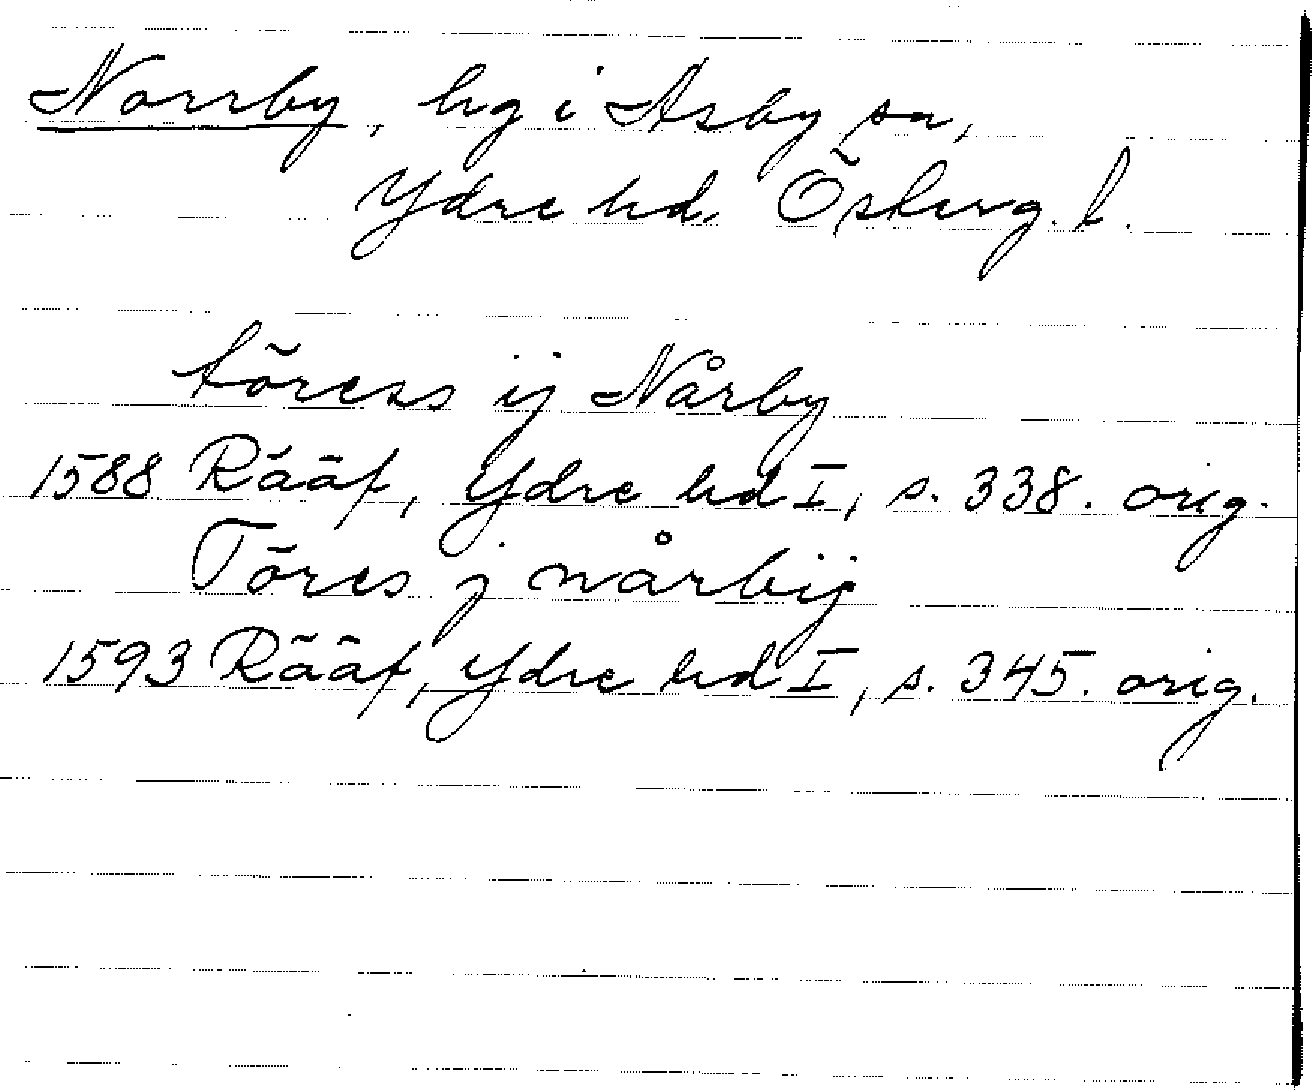 Norrby, hg i Asby sn,
Ydre hd. Österg. l.
töress ij Nårby
1588 Rääf, Ydre hd I, s. 338. orig.
Töres j nårbij
1593 Rääf, Ydre hd I, s. 345. orig.